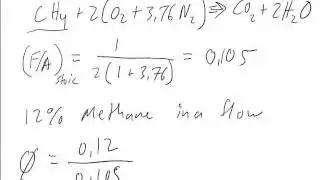 CH4 + 2(O2 + 3,76 N2) ⇒ CO2 + 2H2O
(F/A)stoic = 1 / 2(1+3,76) = 0,105
12% Methane in a flow
φ = 0,12 / 0,105